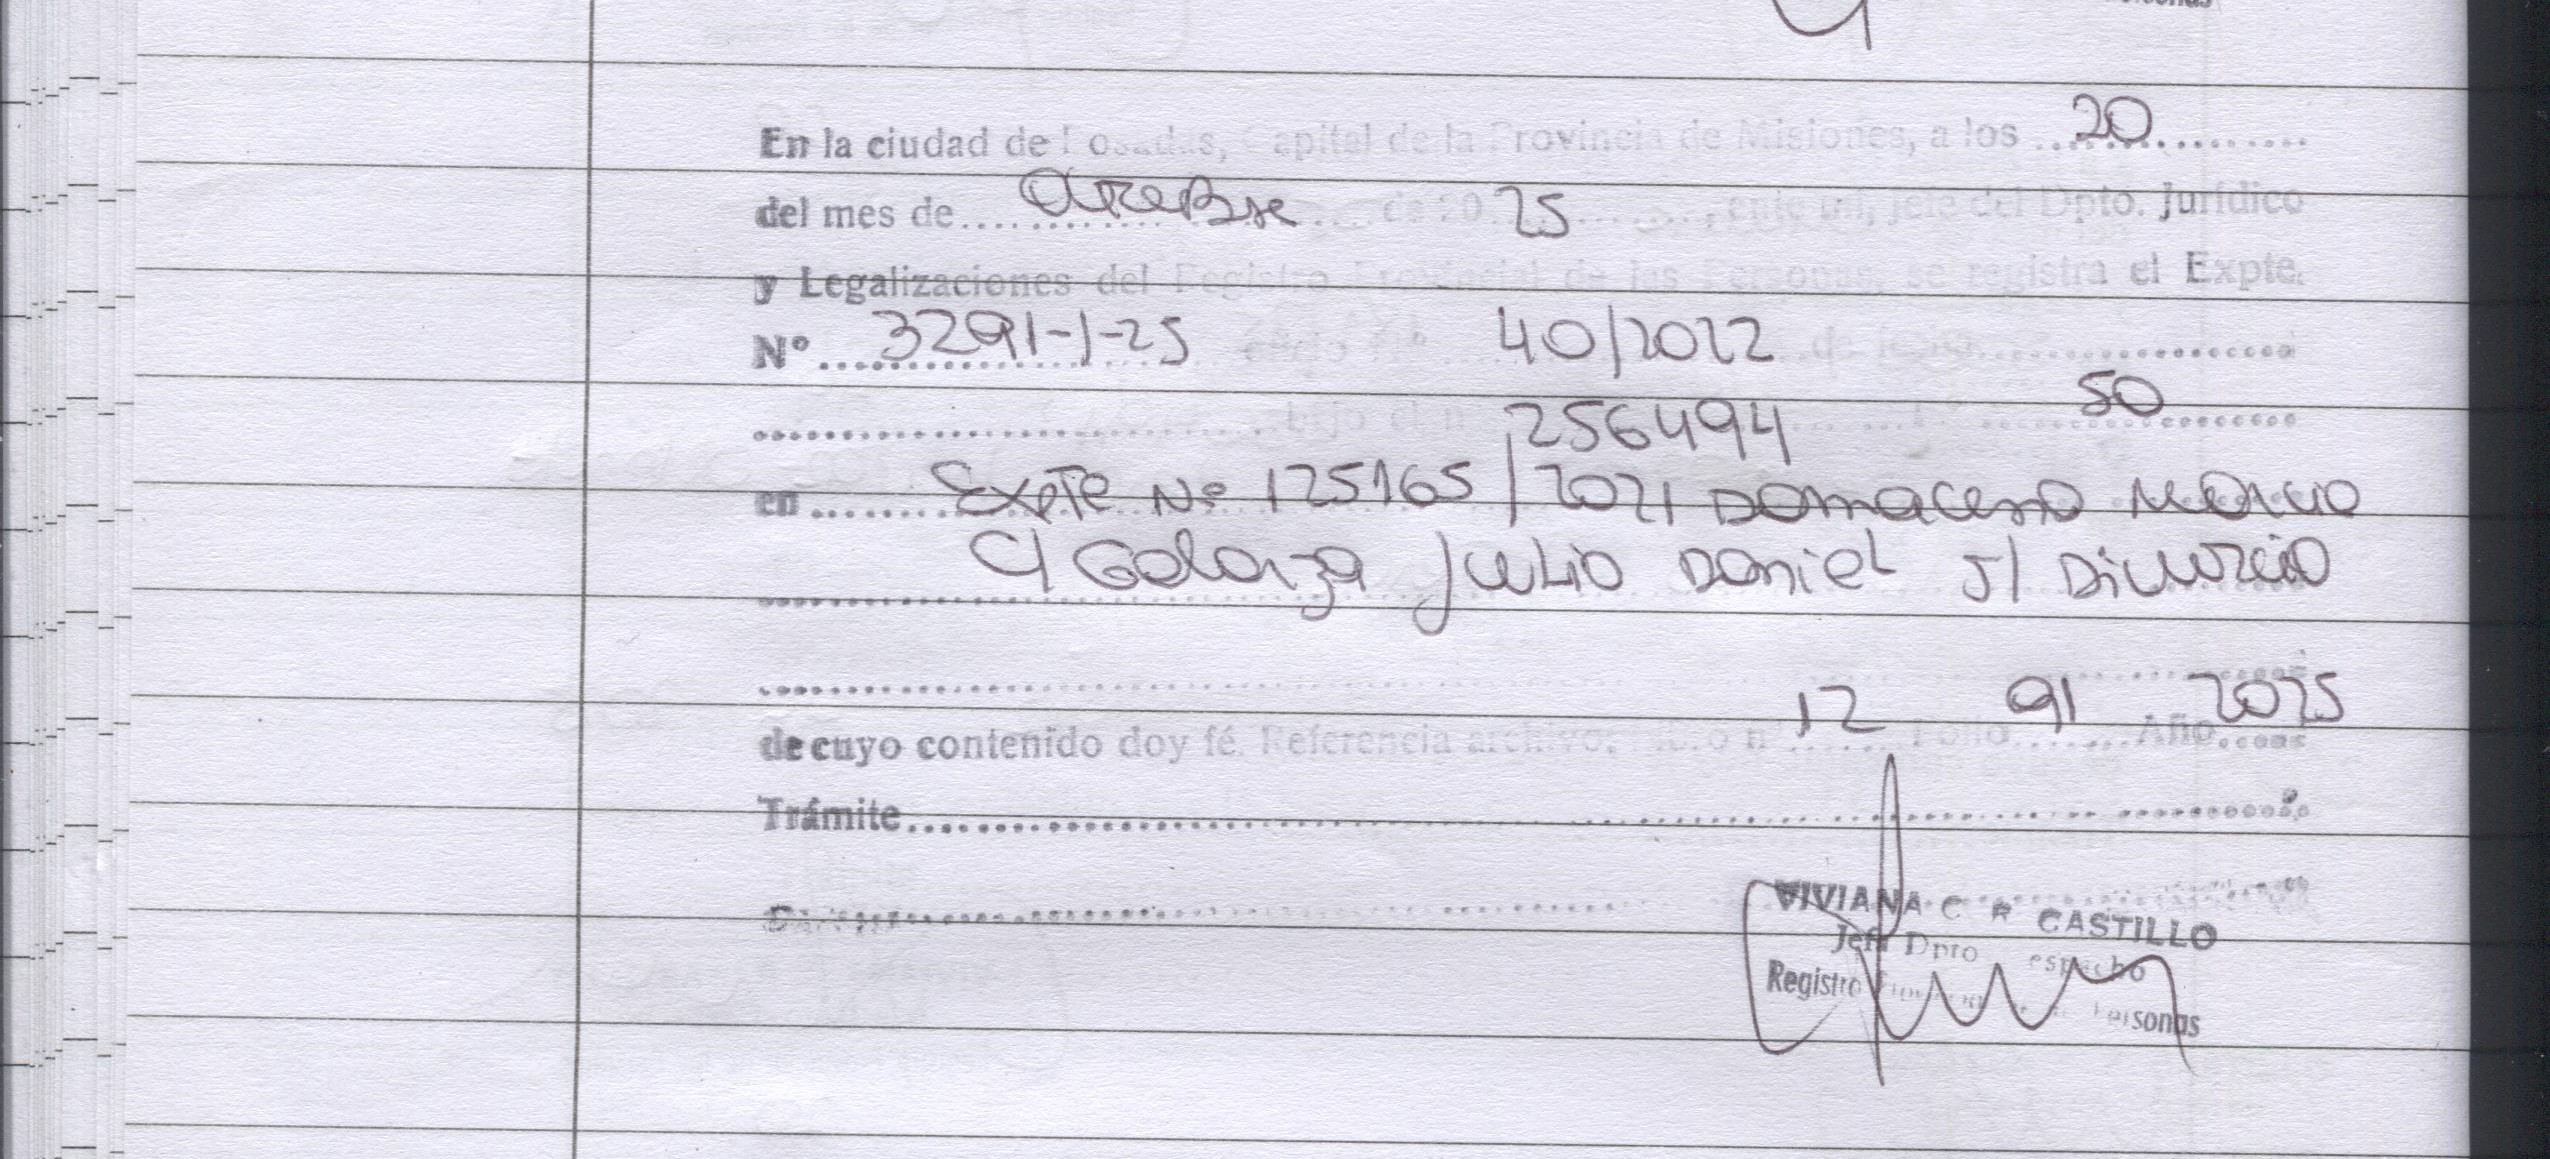 En la ciudad de Posadas, Capital de la Provincia de Misiones, a los 20
del mes de Octubre de 20 25, ante mi, Jefe del Dpto. Jurídico
y Legalizaciones del Registro Provincial de las Personas, se registra el Expte.
Nº 3291-1-25 40/2022 de fecha
bajo el nº 256494 50
en Expte Nº 125165/2021 Damaceno
C/ Galarza Julio Daniel S/ Divorcio
de cuyo contenido doy fé. Referencia archivo: Libro nº 12 Folio 91 Año 2025
Trámite
VIVIANA C R CASTILLO
Jefa Dpto Despacho
Registro Provincial de las Personas